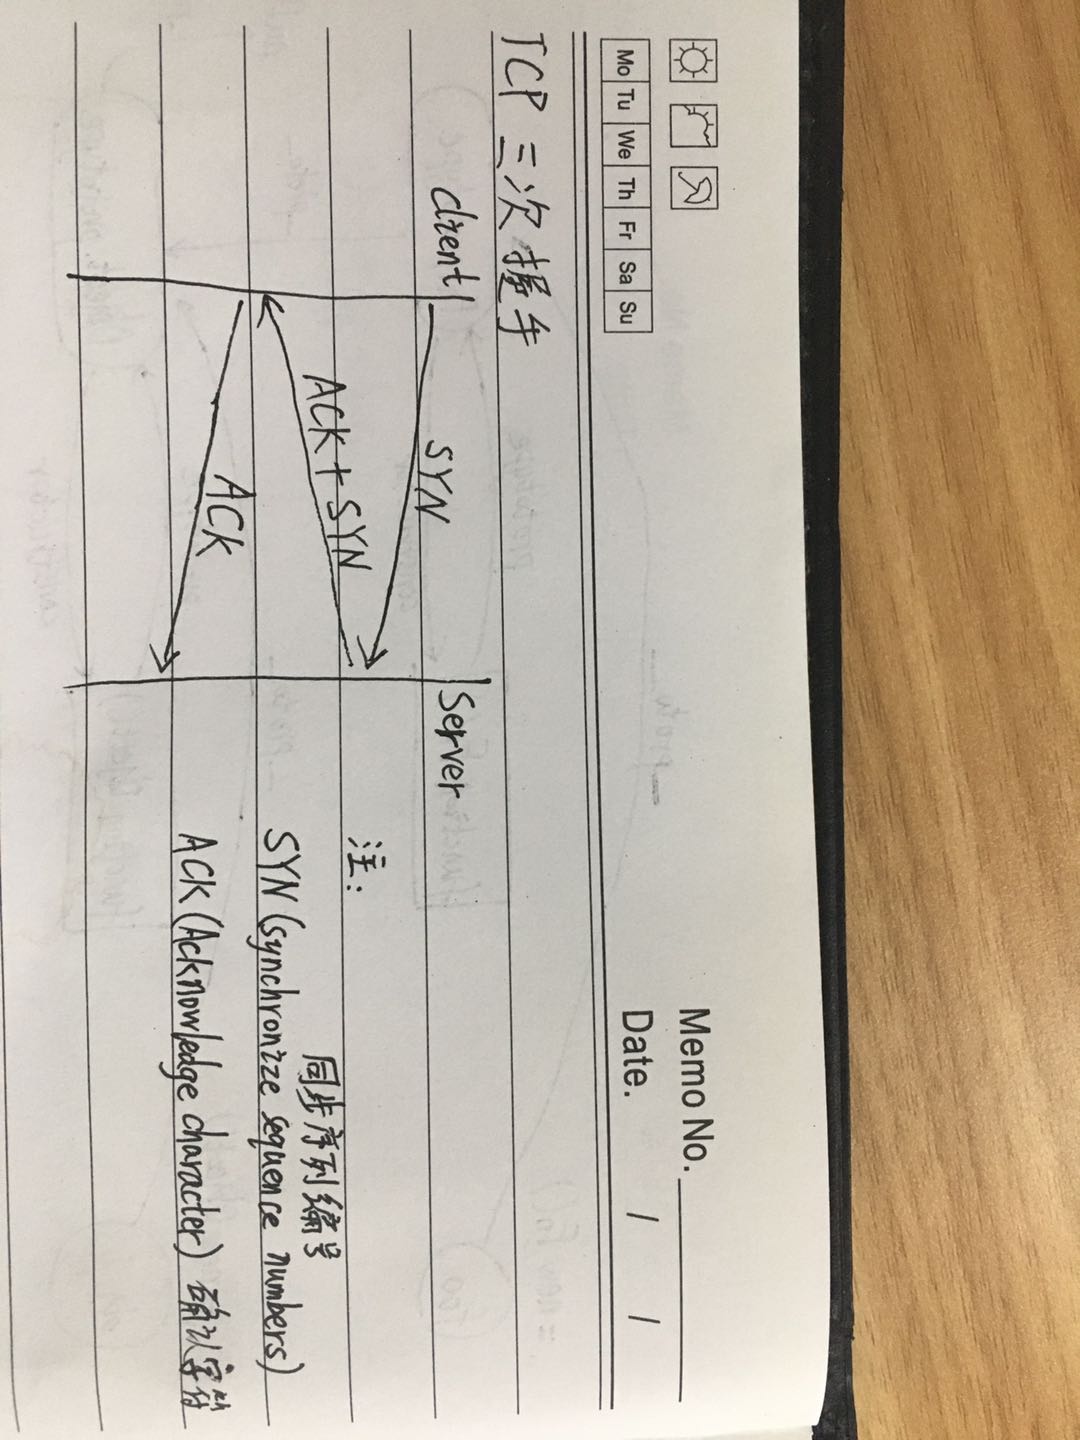 Memo No.
Mo Tu We Th Fr Sa Su
Date. / /
TCP 三次握手
client
Server
SYN
ACK+SYN
ACK
注:
同步序列编号
SYN(synchronize sequence numbers)
ACK(Acknowledge character) 确认字符